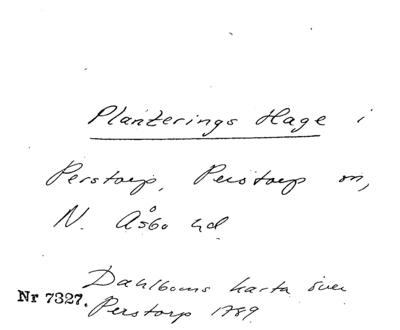 Planterings Hage i
Perstorp, Perstorp sn,
N. Åsbo hd
Dahlboms karta över
Nr 7327. Perstorp 1789.